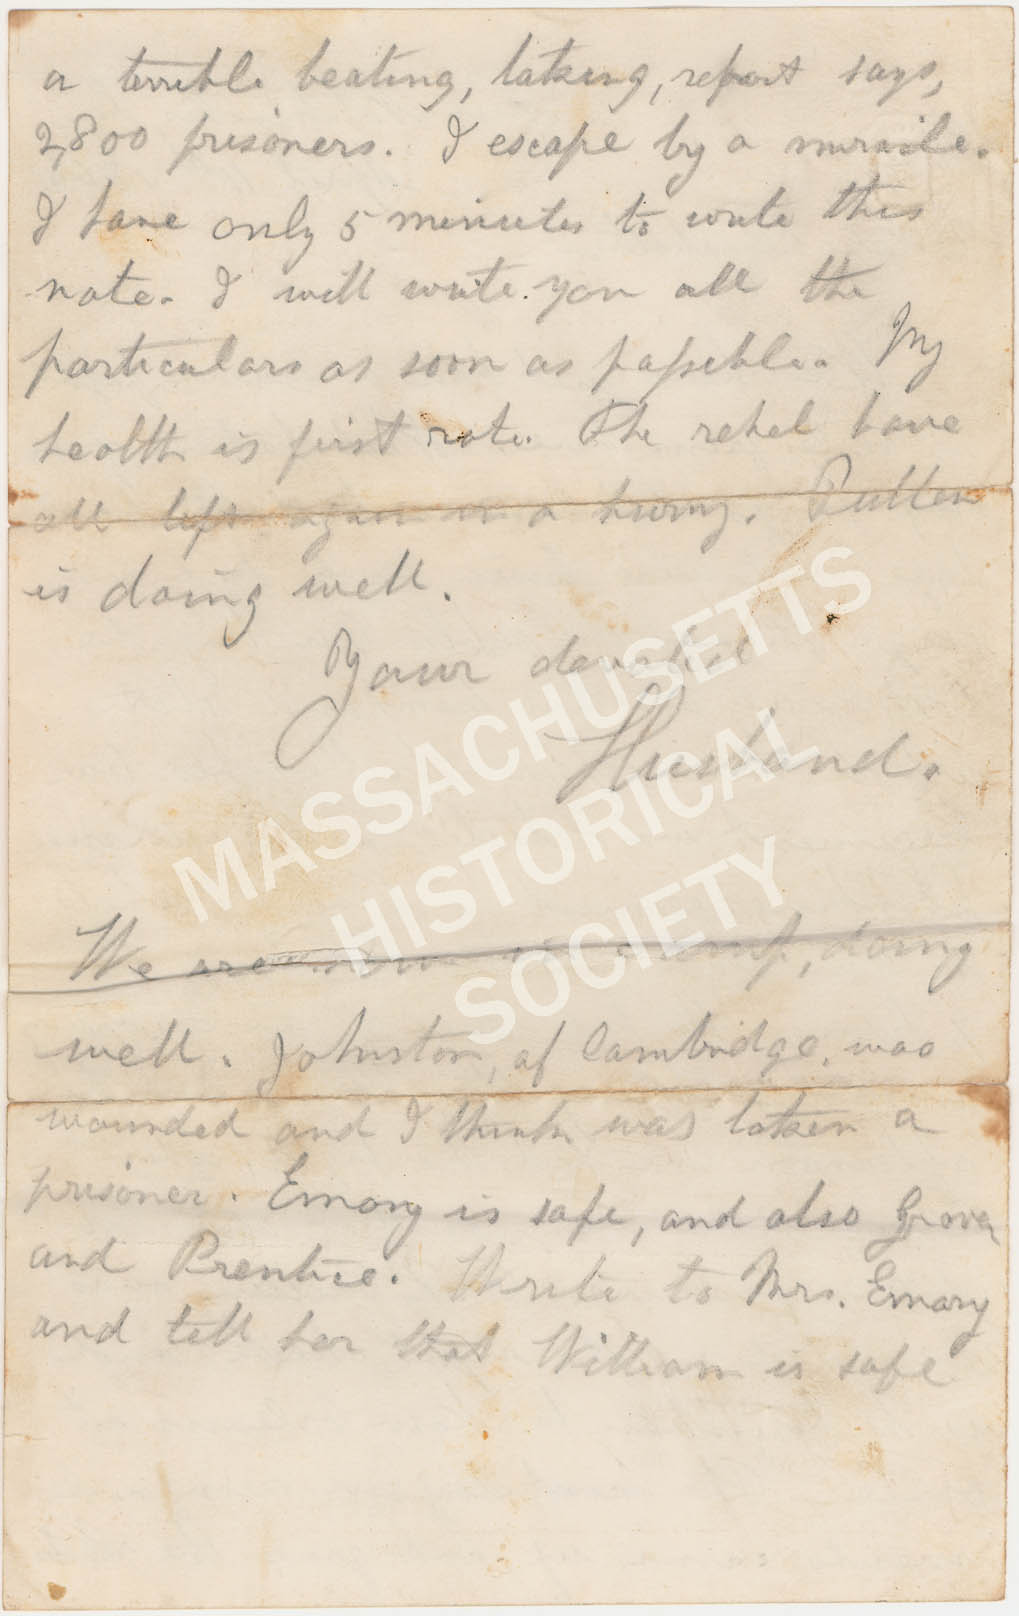 a terrible beating, taking, report says,
2,800 prisoners. I escape by a miracle.
I have only 5 minutes to write this
note. I will write you all the
particulars as soon as possible. My
health is first rate. The rebel have
all left again in a hurry.
is doing well.
Your devoted
Husband.
We are now in camp, doing
well. Johnston, of Cambridge, was
wounded and I think was taken a
prisoner. Emory is safe, and also Grover
and Prentice. Write to Mrs. Emory
and tell her that William is safe
MASSACHUSETTS
HISTORICAL
SOCIETY